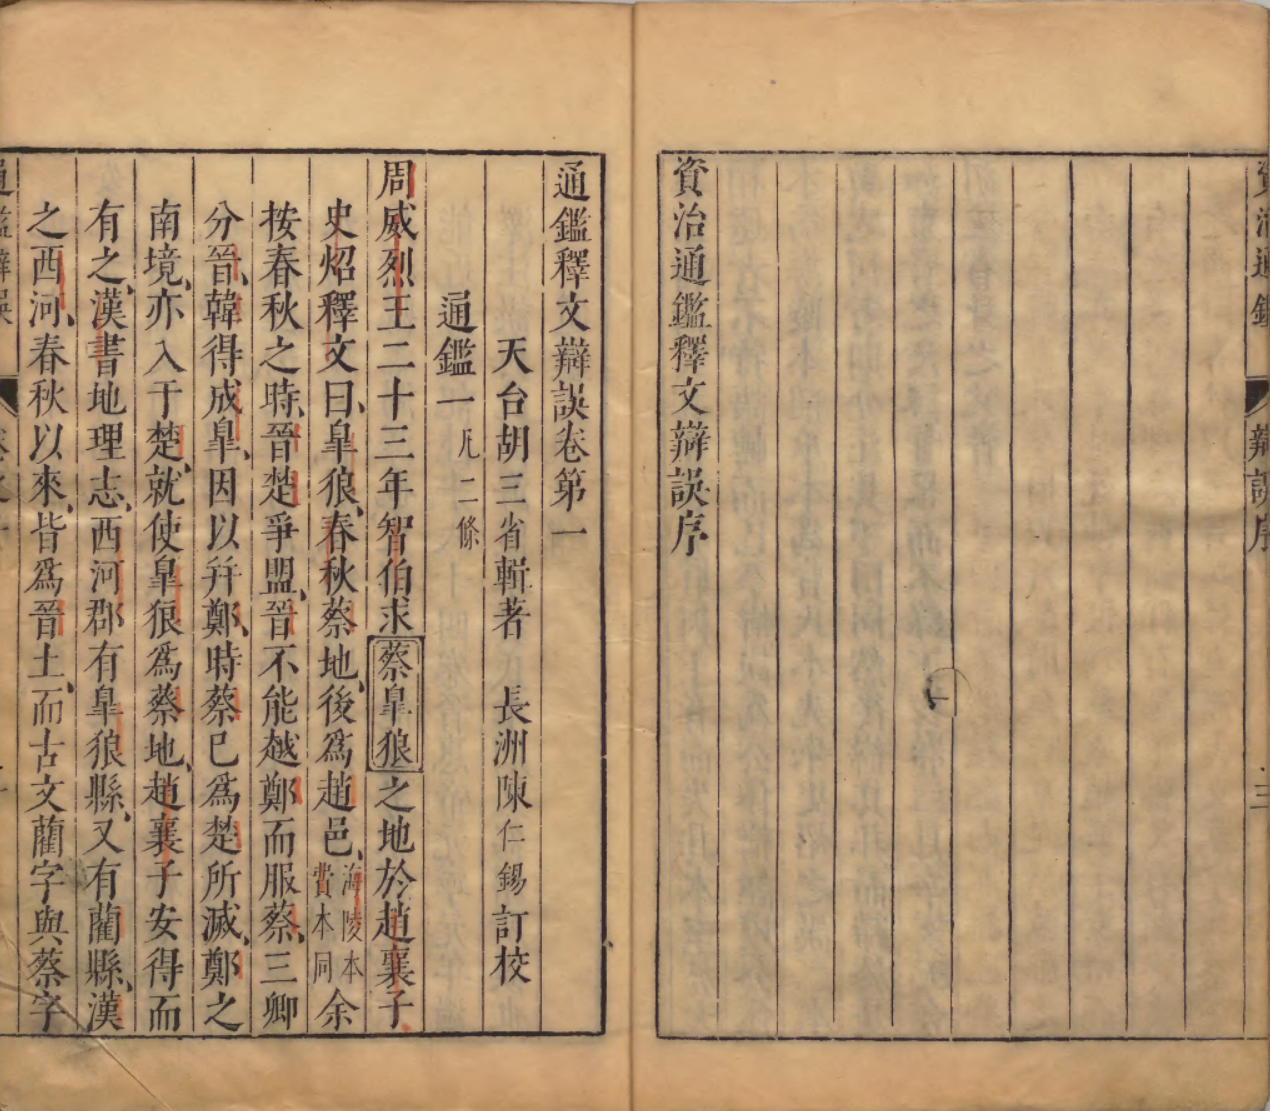 資治通鑑
辯誤序
三
資治通鑑釋文辯誤序
通鑑釋文辯誤卷第一
天台胡三省輯著 長洲陳仁錫訂校
通鑑一凡二條
周威烈王二十三年智伯求蔡臯狼之地於趙襄子
史炤釋文曰臯狼春秋蔡地後爲趙邑海陵本費本同余
按春秋之時晉楚爭盟晉不能越鄭而服蔡三卿
分晉韓得成臯因以幷鄭時蔡已爲楚所滅鄭之
南境亦入于楚就使臯狼爲蔡地趙襄子安得而
有之漢書地理志西河郡有臯狼縣又有藺縣漢
之西河春秋以來皆爲晉土而古文藺字與蔡字
通鑑辯誤